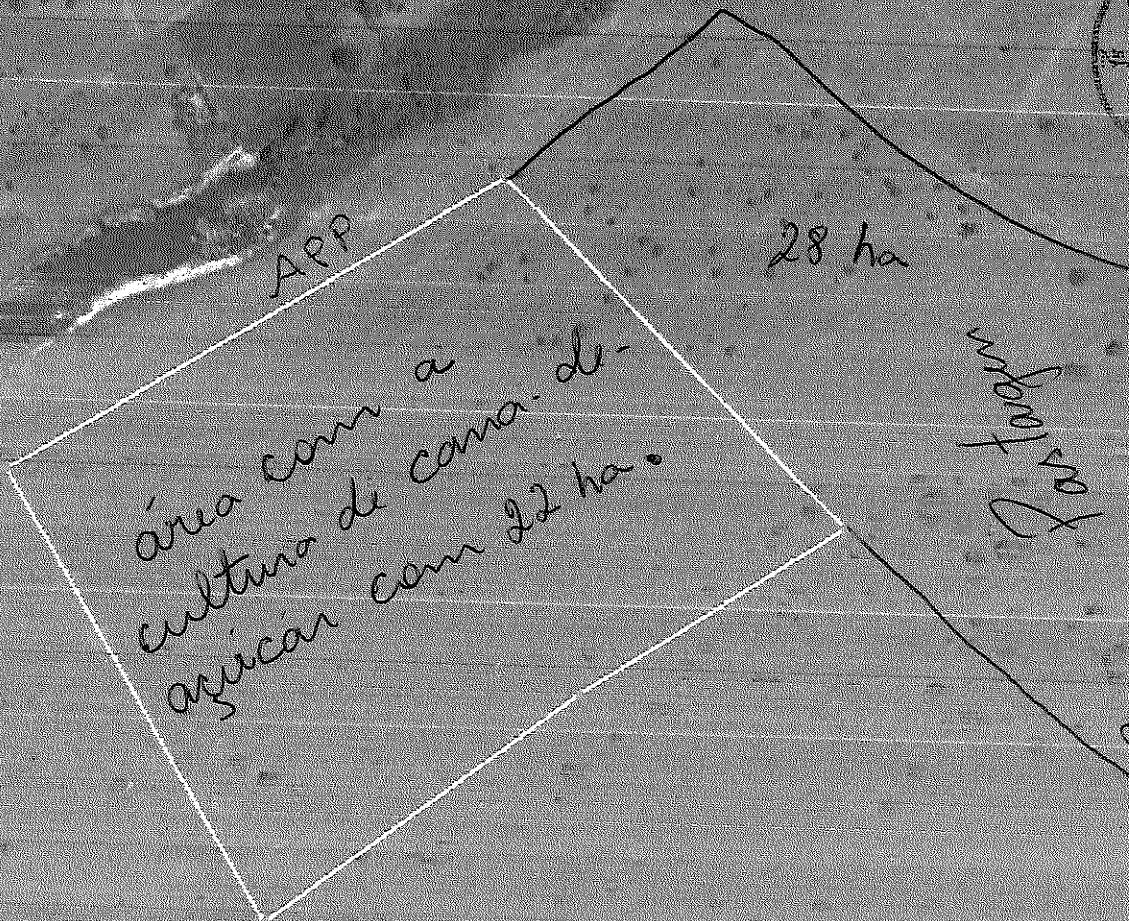 APP
28 ha
área com a
cultura de cana-de-
açúcar com 22 ha.
Pastagem